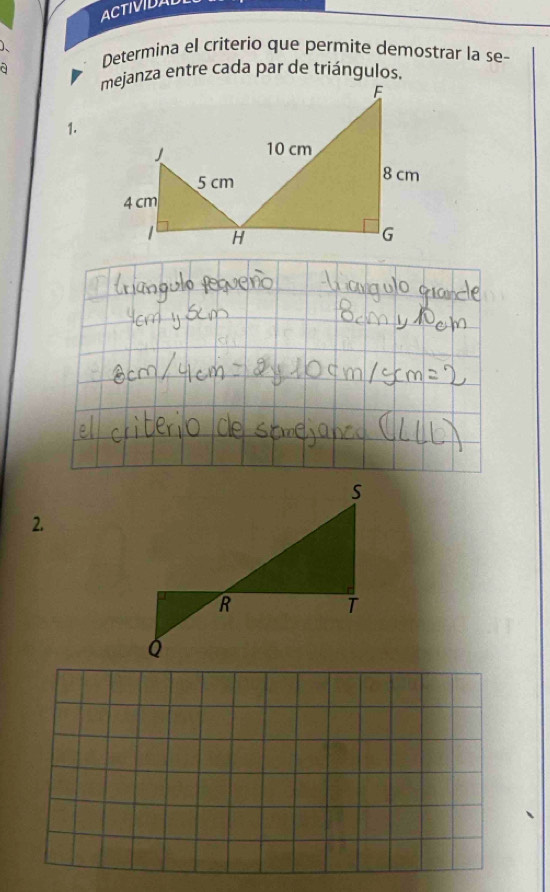 Determina el criterio que permite demostrar la se-
mejanza entre cada par de triángulos.
1.
F
J
10 cm
5 cm
8 cm
4 cm
I
H
G
triangulo pequeño triangulo grande
4cm y 5cm 8cm y 10cm
8cm/4cm = 2 y 10cm/5cm = 2
el criterio de semejanza (LLL)
2.
S
R
T
Q